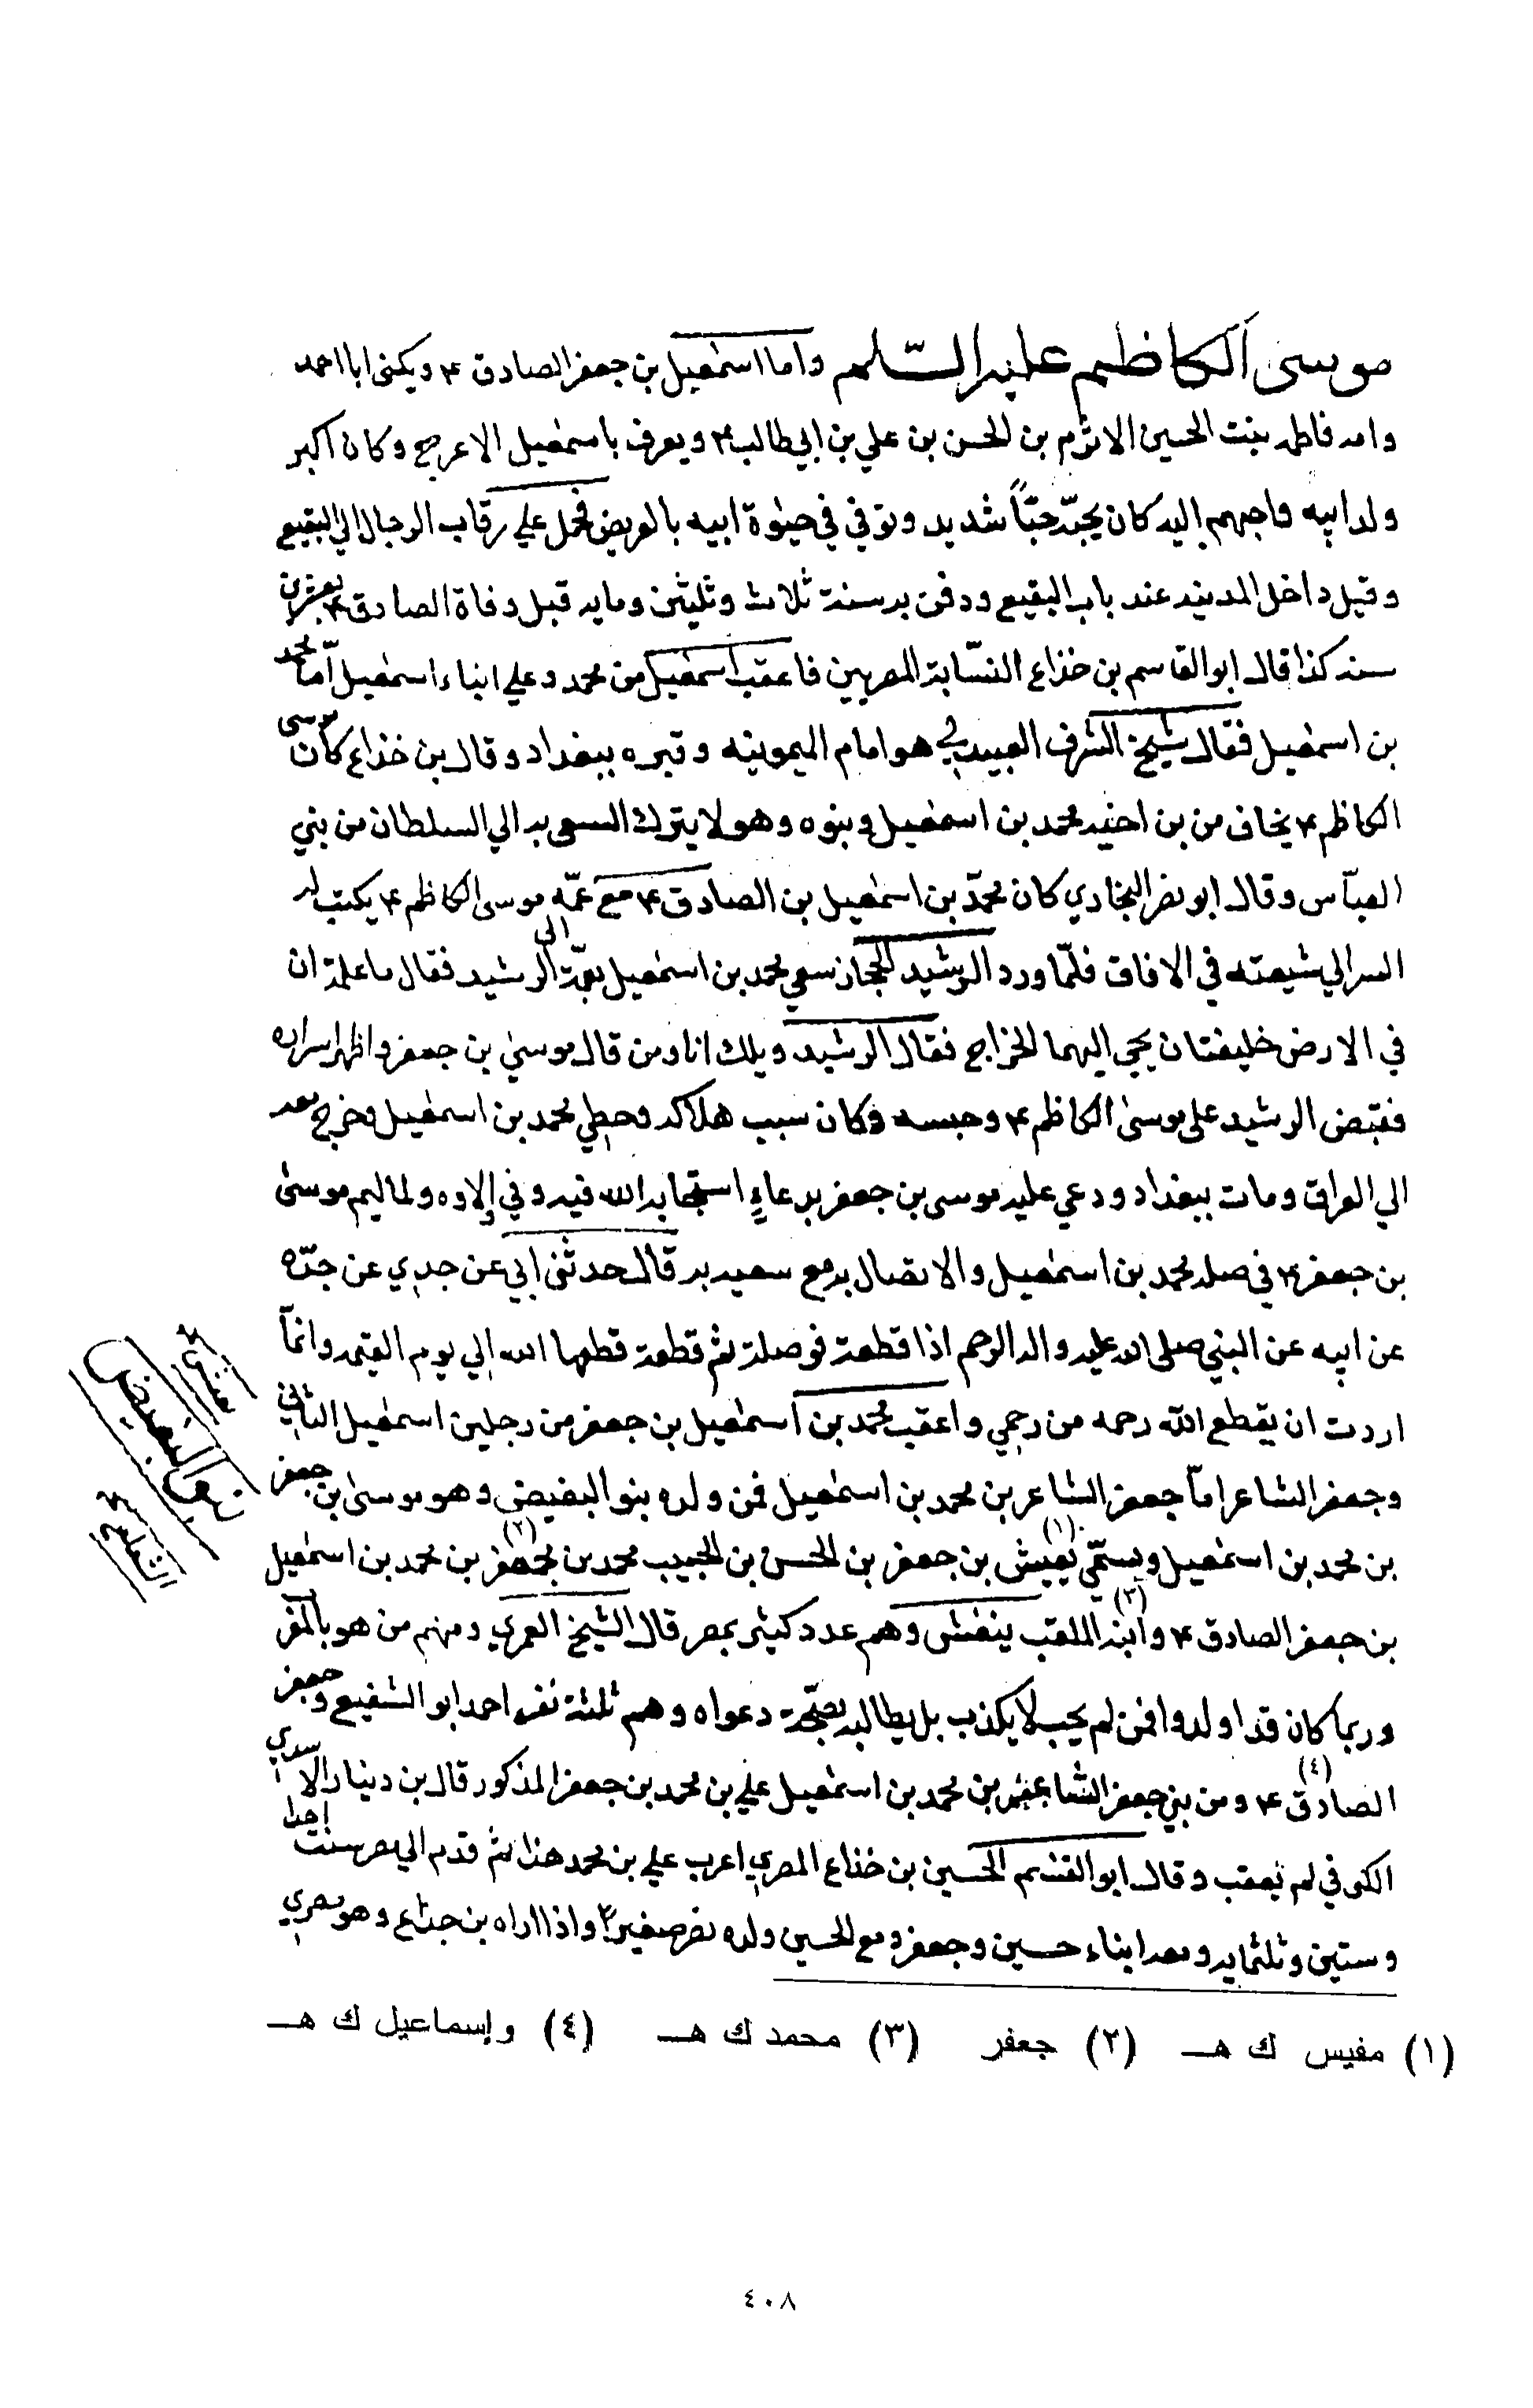 موسى الكاظم عليه السلم واما اسمعيل بن جعفر الصادق ع ويكنى ابا احمد
وامه فاطمه بنت الحسين الاثرم بن الحسن بن علي بن ابي طالب ع ويعرف باسمعيل الاعرج وكان اكبر
ولد ابيه واحبهم اليه كان يحبّه حبّاً شديد وتوفي في حيوة ابيه بالعريض فحمل علي رقاب الرجال الي البقيع
وقيل داخل المدينه عند باب البقيع ودفن به سنة ثلاث وثلثين ومايه قبل وفاة الصادق ع بعشرين
سنه كذا قال ابو القاسم بن خذاع النسّابة المصريين فاعقب اسمعيل من محمد وعلي ابناء اسمعيل امّا محمد
بن اسمعيل فقال شيخ الشرف العبيدلي هو امام الميمونيه وقبره ببغداد وقال بن خذاع كان موسى
الكاظم ع يخاف من بن اخيه محمد بن اسمعيل وبنوه وهو لا يترك السعى به الي السلطان من بني
العبّاس وقال ابو نصر البخاري كان محمّد بن اسمعيل بن الصادق ع مع عمّه موسى الكاظم ع يكتب له
السر الي شيعته في الافاق فلمّا ورد الرشيد الحجاز سعي محمد بن اسمعيل بعمّه الى الرشيد فقال ما علمة ان
في الارض خليفتان يجى اليهما الخراج فقال الرشيد ويلك انا ومن قال موسي بن جعفر واظهر اسراره
فقبض الرشيد على موسى الكاظم ع وحبسه وكان سبب هلاكه وحظي محمد بن اسمعيل وخرج معه
الي العراق ومات ببغداد ودعي عليه موسى بن جعفر بدعاءٍ استجابه الله فيه وفي اولاده ولما ليم موسى
بن جعفر ع في صله محمد بن اسمعيل والاتصال به مع سعيه به قال حدثني ابي عن جدي عن جدّه
عن ابيه عن النبي صلى الله عليه واله الرحم اذا قطعة فوصلة ثم قطعة قطعها الله الي يوم القيمه وانمّا
اردت ان يقطع الله رحمه من رحمي واعقب محمد بن اسمعيل بن جعفر من رجلين اسمعيل الثاني
وجعفر الشاعر امّا جعفر الشاعر بن محمد بن اسمعيل فمن ولده بنو البغيض وهو موسى بن جعفر
بن محمد بن اسمعيل ويسمّي نعيش (١) بن جعفر بن الحسن بن الحبيب محمد بن جعفر (٢) بن محمد بن اسمعيل
بن جعفر الصادق ع وابنه (٣) الملقب بنغنش وهم عدد كثير بمصر قال الشيخ العمري ومنهم من هو بالمغر
وربما كان قد اولدوا فمن لم يجب لا يكذب بل يطالب بصحّة دعواه وهم ثلثة نفر احمد ابو الشفيع وجعفر
الصادق (٤) ع ومن بني جعفر الشاعر بن محمد بن اسمعيل علي بن محمد بن جعفر المذكور قال بن دينار الاسدي
الكوفي لم يعقب وقال ابو القسم الحسين بن خذاع المصري اعرب علي بن محمد هذا ثم قدم الي مصر سنت احدا
وستين وثلثمايه ومعه ابناء حسين وجعفر ومع الحسين ولده نفر صغير واذا اراه بن خذاع وهو مصري
نغنش
بنو البغيض
الشاعر
(١) مفيس ك هـ (٢) جعفر (٣) محمد ك هـ (٤) وإسماعيل ك هـ
٤٠٨